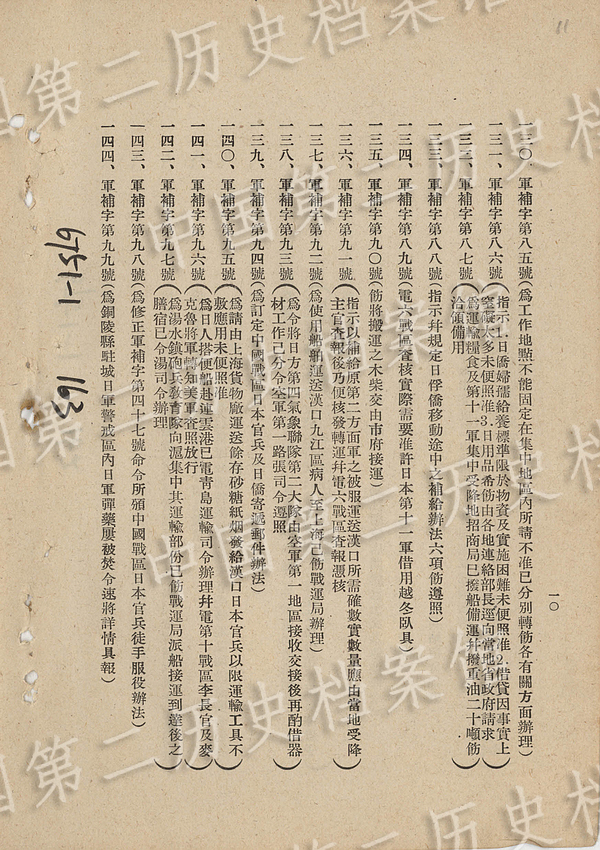 一〇
一三〇、軍補字第八五號（為工作地點不能固定在集中地區內所請不准已分別轉飭各有關方面辦理）
一三一、軍補字第八六號（指示1.日僑婦孺給養標準限於物資及實施困難未便照准2.借貸因事實上
窒礙太多未便照准3.日用品希飭由各地連絡部長逕向當地省政府請求
一三二、軍補字第八七號（為運輸糧食及第十一軍集中受降地招商局已撥船備運幷撥重油二十噸飭
洽領備用
一三三、軍補字第八八號（指示幷規定日俘僑移動途中之補給辦法六項飭遵照）
一三四、軍補字第八九號（電六戰區查核實際需要准許日本第十一軍借用越冬臥具）
一三五、軍補字第九〇號（飭將搬運之木柴交由市府接運）
一三六、軍補字第九一號（指示以補給原第二方面軍之被服運送漢口所需確數實數量應由當地受降
主官查報後乃便核發轉運幷電六戰區查報憑核
一三七、軍補字第九二號（為使用船舶運送漢口九江區病人至上海已飭戰運局辦理）
一三八、軍補字第九三號（為令將日方第四氣象聯隊第二大隊由空軍第一地區接收交接後再酌借器
材工作已分令空軍第一路張司令遵照
一三九、軍補字第九四號（為訂定中國戰區日本官兵及日僑寄遞郵件辦法）
一四〇、軍補字第九五號（為請由上海貨物廠運送餘存砂糖紙烟發給漢口日本官兵以限運輸工具不
敷應用未便照准
一四一、軍補字第九六號（為日人搭便船赴連雲港已電靑島運輸司令辦理幷電第十戰區李長官及麥
克魯將軍轉知美軍查照放行
一四二、軍補字第九七號（為湯水鎮砲兵敎育隊向滬集中其運輸部份已飭戰運局派船接運到達後之
膳宿已令湯司令辦理
一四三、軍補字第九八號（為修正軍補字第四十七號命令所頒中國戰區日本官兵徒手服役辦法）
一四四、軍補字第九九號（為銅陵縣駐城日軍警戒區內日軍彈藥屢被焚令速將詳情具報）
6751-1
163
11
国第二历史档案馆
中国第二历史档案馆
中国第二历史档案馆
国第二历史档案馆